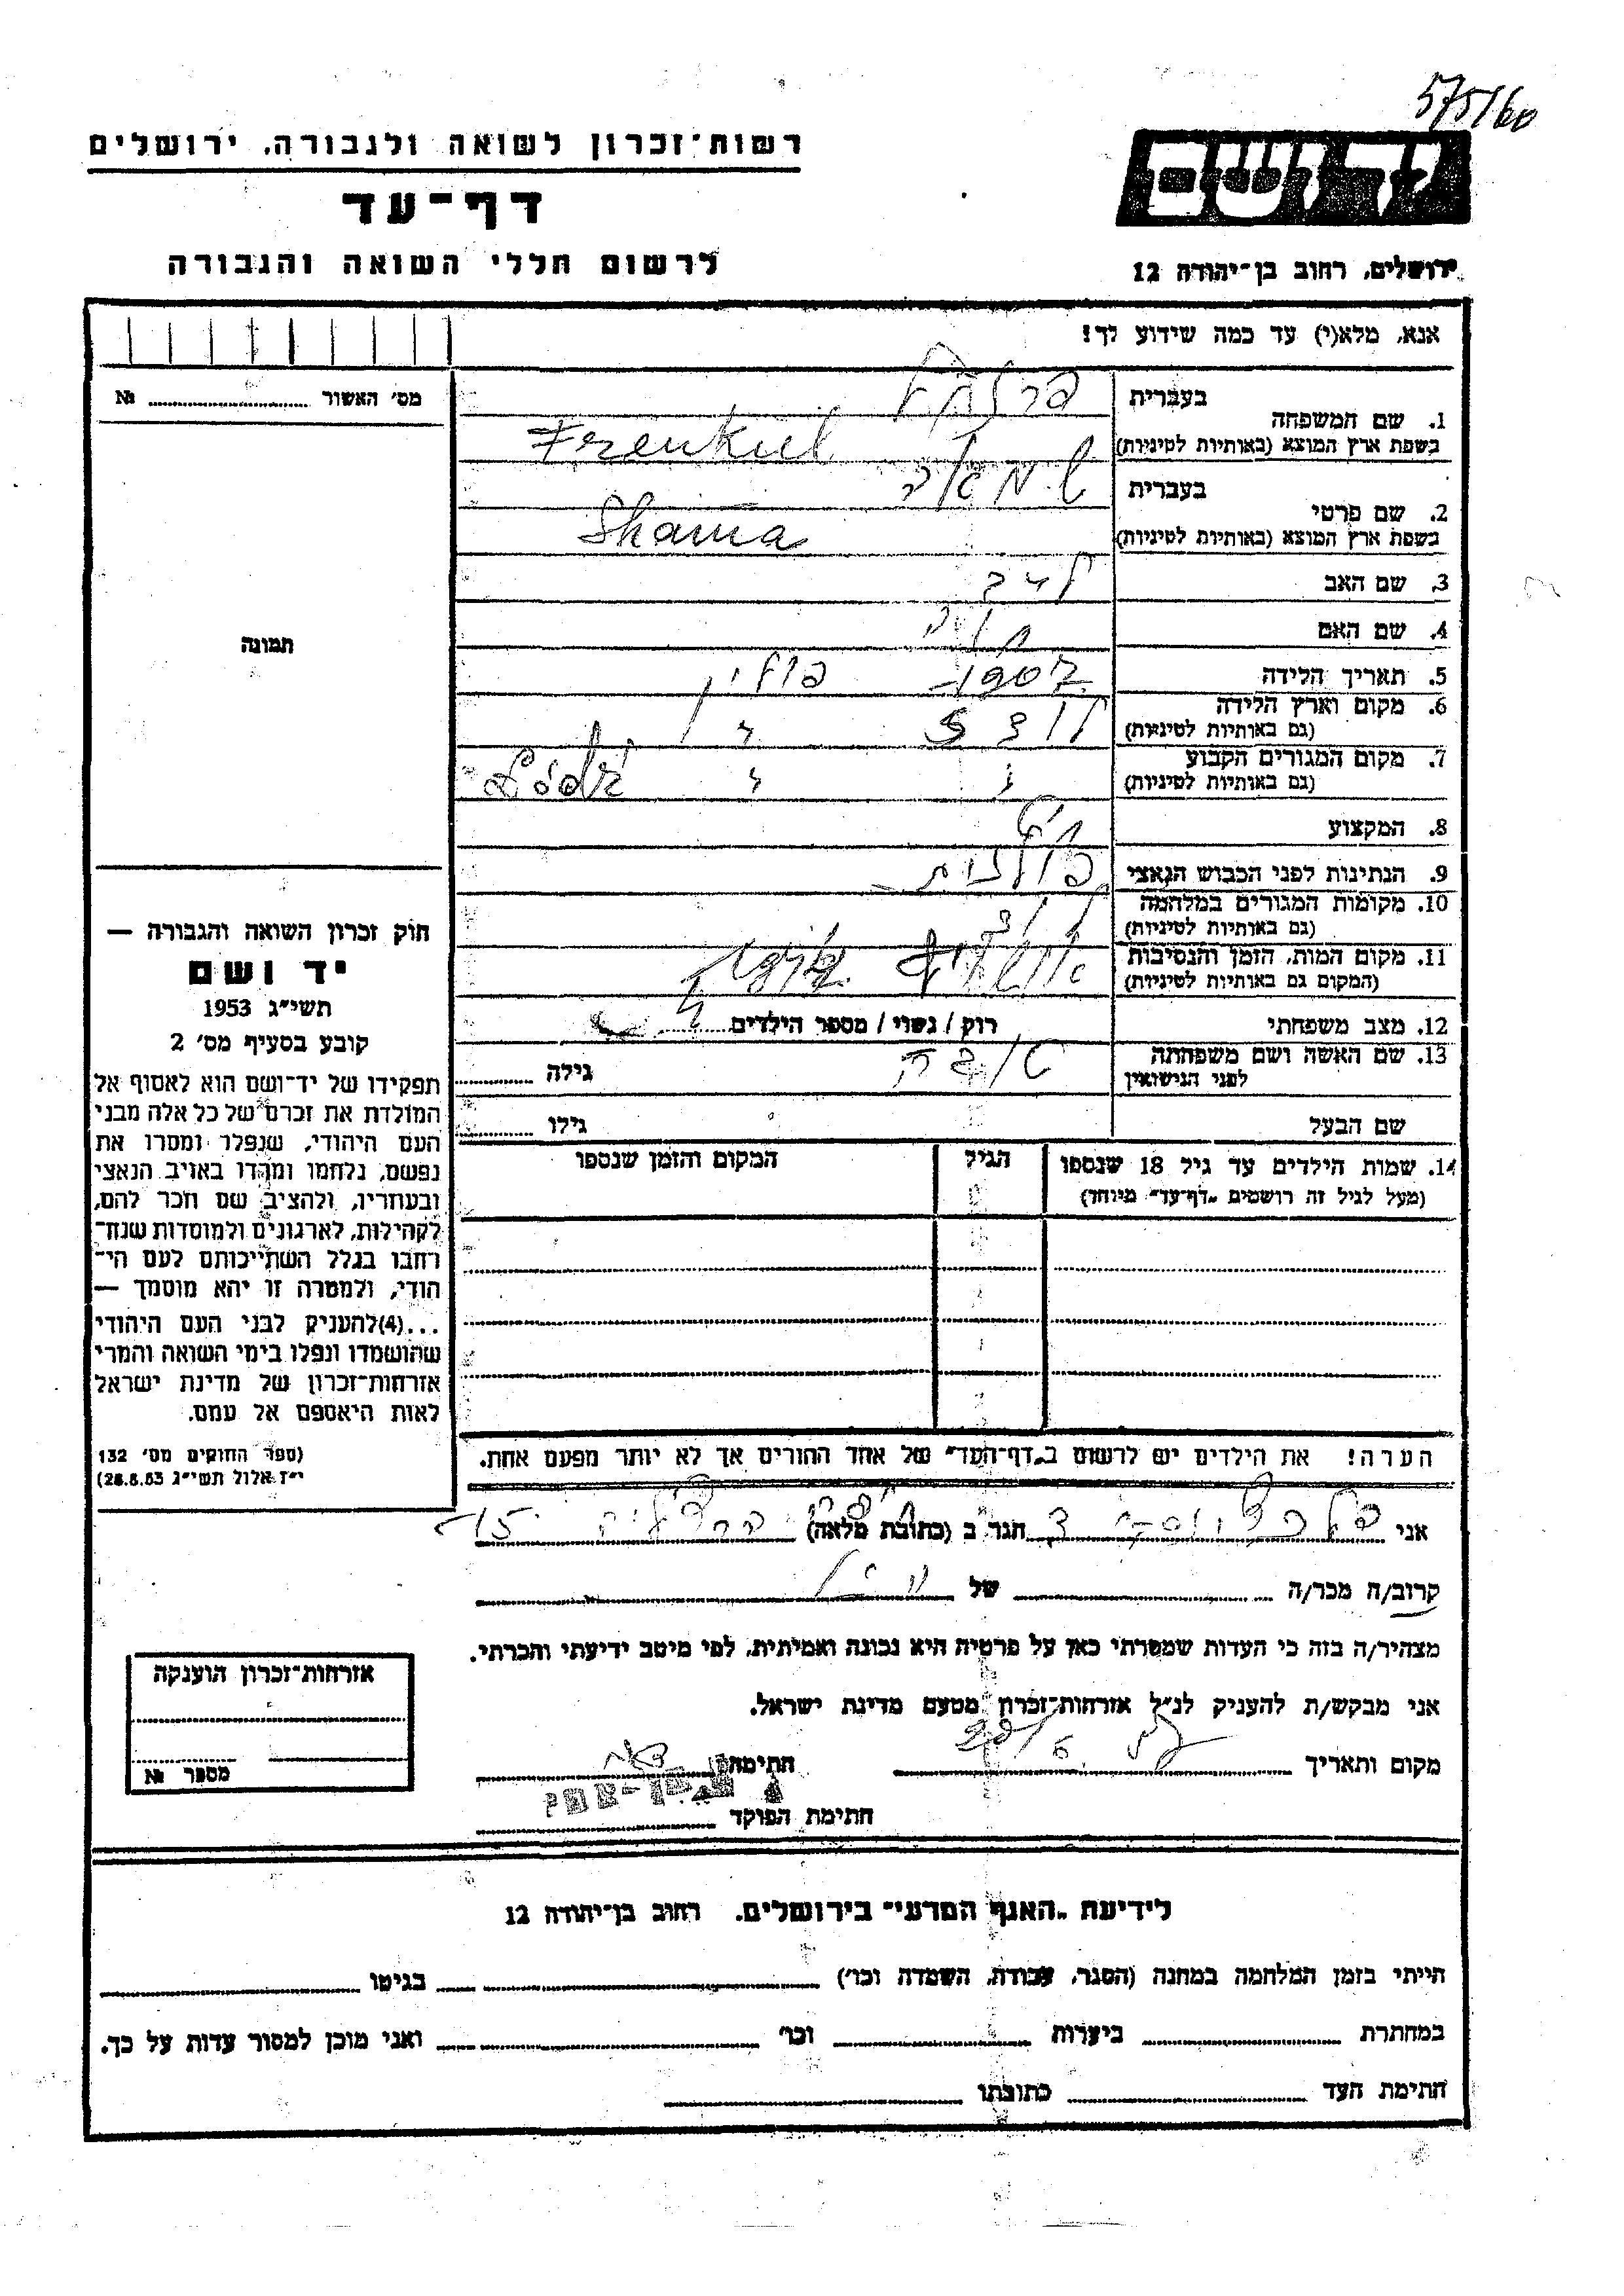 575/60
רשות־זכרון לשואה ולגבורה, ירושלים
יד ושם
דף־עד
לרשום חללי השואה והגבורה
ירושלים, רחוב בן־יהודה 12
אנא, מלא(י) עד כמה שידוע לך!
מס׳ האשור № 
בעברית
1. שם המשפחה
בשפת ארץ המוצא (באותיות לטיניות) Frenkiel
בעברית
2. שם פרטי
בשפת ארץ המוצא (באותיות לטיניות) Shama
3. שם האב
4. שם האם
תמונה
5. תאריך הלידה 1907 פולין
6. מקום וארץ הלידה לודז "
(גם באותיות לטיניות)
7. מקום המגורים הקבוע " " Łódź
(גם באותיות לטיניות)
8. המקצוע
9. הנתינות לפני הכבוש הנאצי פולנית
10. מקומות המגורים במלחמה
(גם באותיות לטיניות)
11. מקום המות, הזמן והנסיבות
(המקום גם באותיות לטיניות)
12. מצב משפחתי רוק / נשוי / מספר הילדים
13. שם האשה ושם משפחתה טובה גילה
לפני הנישואין
שם הבעל גילו
14. שמות הילדים עד גיל 18 שנספו הגיל המקום והזמן שנספו
(מעל לגיל זה רושמים „דף־עד" מיוחד)
חוק זכרון השואה והגבורה —
יד ושם
תשי״ג 1953
קובע בסעיף מס׳ 2
תפקידו של יד־ושם הוא לאסוף אל
המולדת את זכרם של כל אלה מבני
העם היהודי, שנפלו ומסרו את
נפשם, נלחמו ומרדו באויב הנאצי
ובעוזריו, ולהציב שם וזכר להם,
לקהילות, לארגונים ולמוסדות שנח־
רחבו בגלל השתייכותם לעם הי־
הודי, ולמטרה זו יהא מוסמך —
...(4)להעניק לבני העם היהודי
שהושמדו ונפלו בימי השואה והמרי
אזרחות־זכרון של מדינת ישראל
לאות היאספם אל עמם.
(ספר החוקים מס׳ 132
י״ז אלול תשי״ג 28.8.53)
הערה! את הילדים יש לרשום ב„דף־העד" של אחד ההורים אך לא יותר מפעם אחת.
אני הגר ב (כתובת מלאה)
קרוב/ה מכר/ה של
מצהיר/ה בזה כי העדות שמסרתי כאן על פרטיה היא נכונה ואמיתית, לפי מיטב ידיעתי והכרתי.
אני מבקש/ת להעניק לנ״ל אזרחות־זכרון מטעם מדינת ישראל.
מקום ותאריך חתימה
חתימת הפוקד
אזרחות־זכרון הוענקה
מספר №
לידיעת „האגף המדעי" בירושלים, רחוב בן־יהודה 12
הייתי בזמן המלחמה במחנה (הסגר, עבודה, השמדה וכו׳) בגיטו
במחתרת ביערות וכו׳ ואני מוכן למסור עדות על כך.
חתימת העד כתובתו